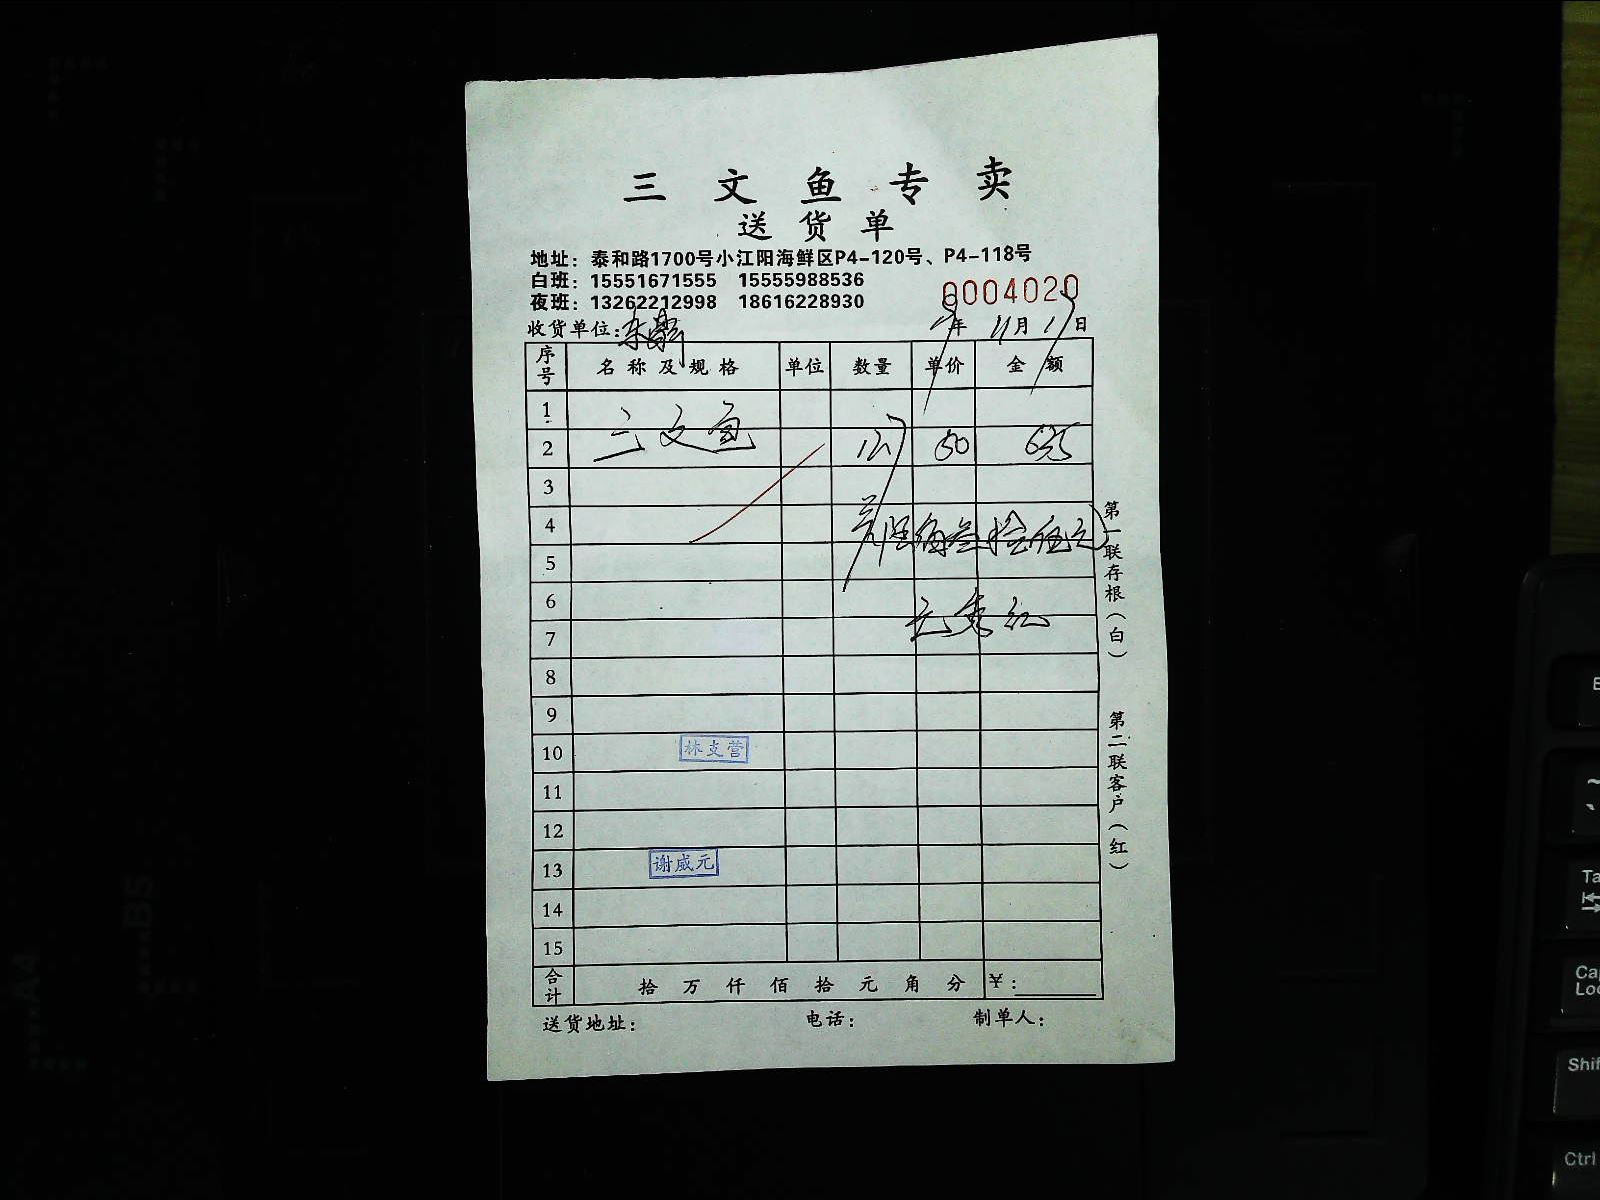 三文鱼专卖
送货单
地址：泰和路1700号小江阳海鲜区P4-120号、P4-118号
白班：15551671555 15555988536
夜班：13262212998 18616228930
0004020
收货单位：
年 11月 17日
序号 名称及规格 单位 数量 单价 金额
1
三文鱼
2 127 50 635
3
4 陆佰叁拾伍元
5
6
7
8
9
10 林支营
11
12
13 谢威元
14
15
合计 拾 万 仟 佰 拾 元 角 分 ¥：
送货地址： 电话： 制单人：
第一联存根（白）
第二联客户（红）
B5
A4
Ta
Ca
Loc
Shif
Ctrl